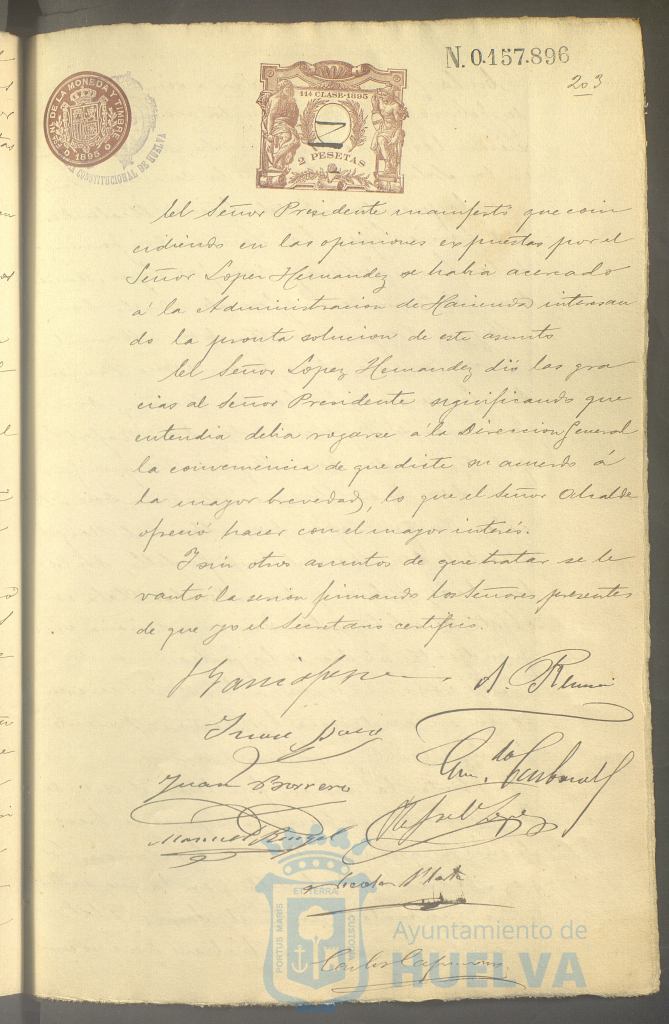 N. 0.157.896
203
FCA. N. DE LA MONEDA Y TIMBRE
1895
CONSTITUCIONAL DE HUELVA
11ª CLASE-1895
2 PESETAS
El Señor Presidente manifestó que coin
cidiendo en las opiniones expuestas por el
Señor Lopez Hernandez se habia acercado
á la Administracion de Hacienda interesan
do la pronta solucion de este asunto
El Señor Lopez Hernandez dió las gra
cias al Señor Presidente significando que
entendia debia rogarse á la Direccion General
la conveniencia de que dicte su acuerdo á
la mayor brevedad, lo que el Señor Alcalde
ofreció hacer con el mayor interés.
Y sin otros asuntos de que tratar se le
vantó la sesion firmando los Señores presentes
de que yo el Secretario certifico.
A.
Juan Borrero
Carbonell
Manuel
PORTUS MARIS
ET TERRÆ
CUSTODIA
Ayuntamiento de
HUELVA